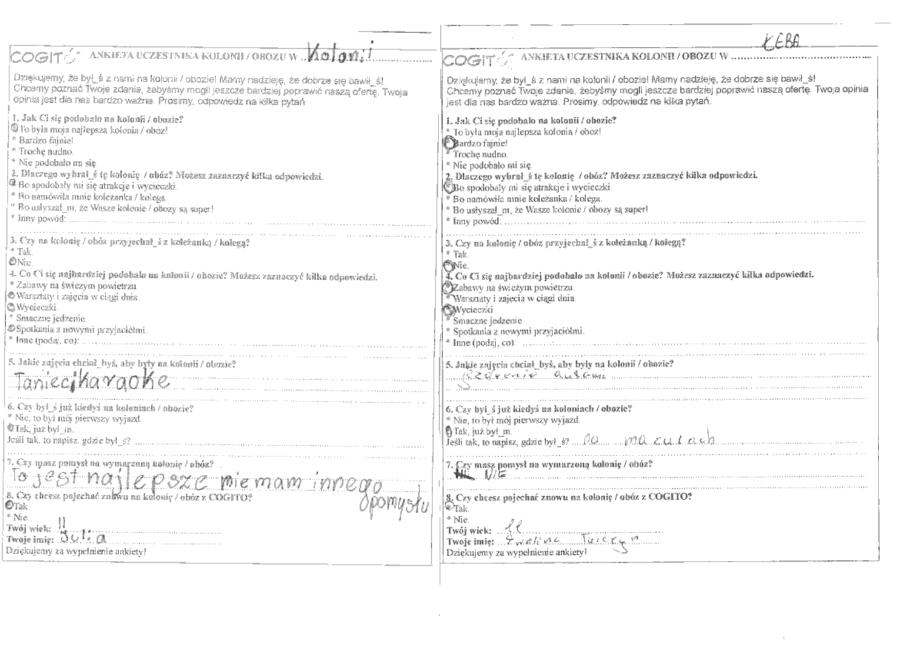 COGITO ANKIETA UCZESTNIKA KOLONII / OBOZU W Kolonii
Dziękujemy, że był_ś z nami na kolonii / obozie! Mamy nadzieję, że dobrze się bawił_ś!
Chcemy poznać Twoje zdania, żebyśmy mogli jeszcze bardziej poprawić naszą ofertę. Twoja
opinia jest dla nas bardzo ważna. Prosimy, odpowiedz na kilka pytań
1. Jak Ci się podobało na kolonii / obozie?
To była moja najlepsza kolonia / obóz!
* Bardzo fajnie!
* Trochę nudno.
* Nie podobało mi się
2. Dlaczego wybrał_ś tę kolonię / obóz? Możesz zaznaczyć kilka odpowiedzi.
Bo spodobały mi się atrakcje i wycieczki.
* Bo namówiła mnie koleżanka / kolega.
* Bo usłyszał_m, że Wasze kolonie / obozy są super!
* Inny powód:
3. Czy na kolonię / obóz przyjechał_ś z koleżanką / kolegą?
* Tak
Nie.
4. Co Ci się najbardziej podobało na kolonii / obozie? Możesz zaznaczyć kilka odpowiedzi.
* Zabawy na świeżym powietrzu
Warsztaty i zajęcia w ciągi dnia.
Wycieczki
* Smaczne jedzenie
Spotkania z nowymi przyjaciółmi.
* Inne (podaj, co):
5. Jakie zajęcia chciał_byś, aby były na kolonii / obozie?
Taniec, Karaoke
6. Czy był_ś już kiedyś na koloniach / obozie?
* Nie, to był mój pierwszy wyjazd.
Tak, już był_m.
Jeśli tak, to napisz, gdzie był_ś?
7. Czy masz pomysł na wymarzoną kolonię / obóz?
To jest najlepsze nie mam innego
pomysłu
8. Czy chcesz pojechać znowu na kolonię / obóz z COGITO?
Tak
* Nie
Twój wiek: 11
Twoje imię: Julia
Dziękujemy za wypełnienie ankiety!
ŁEBA
COGITO ANKIETA UCZESTNIKA KOLONII / OBOZU W
Dziękujemy, że był_ś z nami na kolonii / obozie! Mamy nadzieję, że dobrze się bawił_ś!
Chcemy poznać Twoje zdania, żebyśmy mogli jeszcze bardziej poprawić naszą ofertę. Twoja opinia
jest dla nas bardzo ważna. Prosimy, odpowiedz na kilka pytań.
1. Jak Ci się podobało na kolonii / obozie?
* To była moja najlepsza kolonia / obóz!
Bardzo fajnie!
* Trochę nudno.
* Nie podobało mi się
2. Dlaczego wybrał_ś tę kolonię / obóz? Możesz zaznaczyć kilka odpowiedzi.
Bo spodobały mi się atrakcje i wycieczki.
* Bo namówiła mnie koleżanka / kolega.
* Bo usłyszał_m, że Wasze kolonie / obozy są super!
* Inny powód:
3. Czy na kolonię / obóz przyjechał_ś z koleżanką / kolegą?
* Tak
Nie.
4. Co Ci się najbardziej podobało na kolonii / obozie? Możesz zaznaczyć kilka odpowiedzi.
Zabawy na świeżym powietrzu
* Warsztaty i zajęcia w ciągi dnia
Wycieczki
* Smaczne jedzenie
* Spotkania z nowymi przyjaciółmi.
* Inne (podaj, co)
5. Jakie zajęcia chciał_byś, aby były na kolonii / obozie?
6. Czy był_ś już kiedyś na koloniach / obozie?
* Nie, to był mój pierwszy wyjazd.
Tak, już był_m
Jeśli tak, to napisz, gdzie był_ś? na mazurach
7. Czy masz pomysł na wymarzoną kolonię / obóz?
NIE
8. Czy chcesz pojechać znowu na kolonię / obóz z COGITO?
Tak
* Nie
Twój wiek: 11
Twoje imię: Ewelina
Dziękujemy za wypełnienie ankiety!